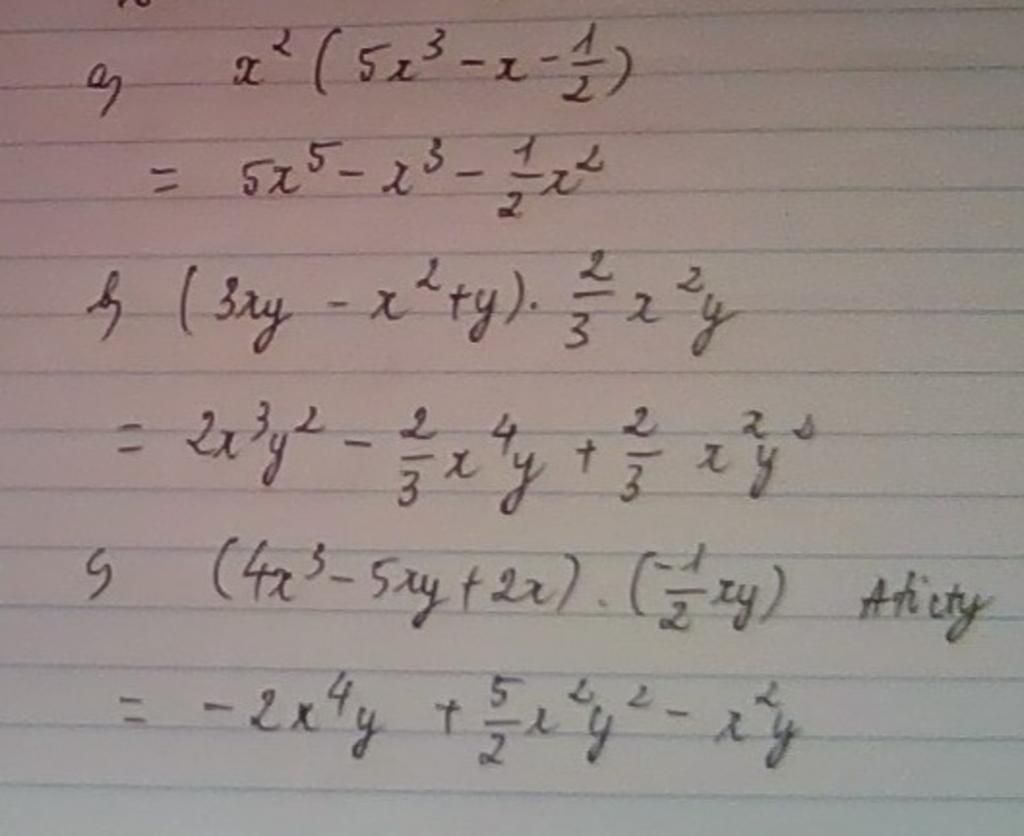 a) x² ( 5x³ - x - 1/2 )
= 5x⁵ - x³ - 1/2 x²
b) ( 3xy - x² + y ) . 2/3 x² y
= 2x³y² - 2/3 x⁴y + 2/3 x²y²
c) ( 4x³ - 5xy + 2x ) . ( -1/2 xy )
= - 2x⁴y + 5/2 x²y² - x²y